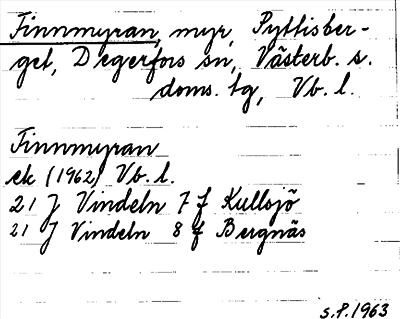 Finnmyran, myr, Pyttisber-
get, Degerfors sn, Västerb. s.
doms. tg, Vb. l.
Finnmyran
ek (1962) Vb. l.
21 J Vindeln 7 f Kullsjö
21 J Vindeln 8 f Bergnäs
S.P. 1963